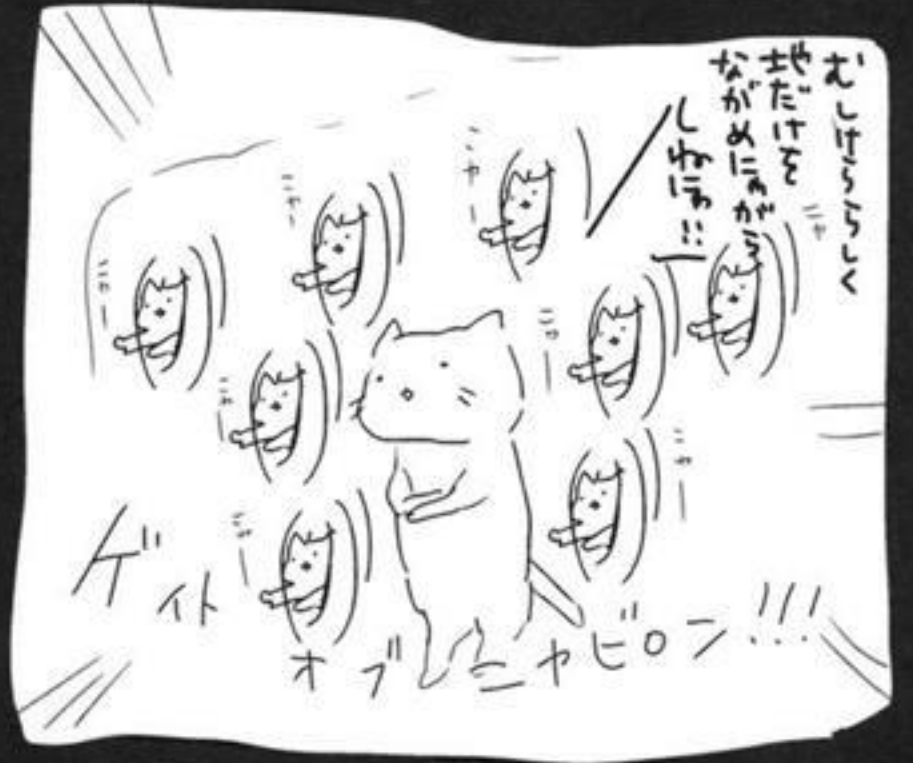 むしけららしく
地だけを
ながめにゃがら
しねにゃ!!
ニャー
ニャー
ニャー
ニャ
ニャー
ニャー
ニャー
ニャー
ゲイト
オブニャビロン!!!